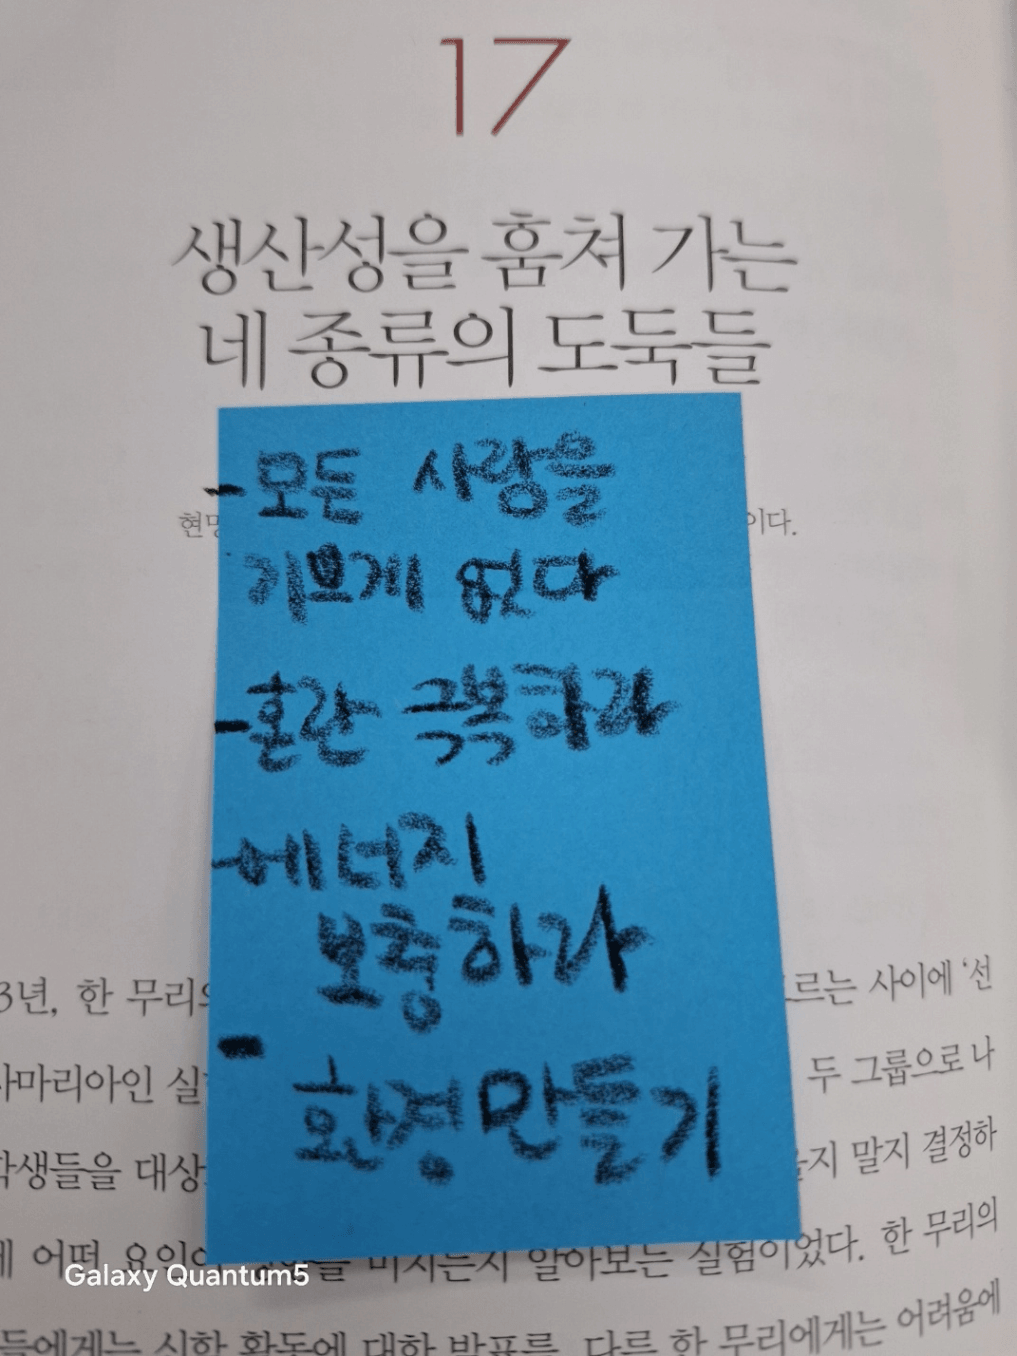 17
생산성을 훔쳐 가는
네 종류의 도둑들
-모든 사랑을
기쁘게 없다
이다.
-혼란 극복하라
-에너지
보충하라
3년, 한 무리의 르는 사이에 '선
사마리아인 실 두 그룹으로 나
- 환경만들기
학생들을 대상 지 말지 결정하
어떤 요인이 미치는지 알아보는 실험이었다. 한 무리의
Galaxy Quantum5
들에게는 신학 활동에 대한 발표를, 다른 한 무리에게는 어려움에